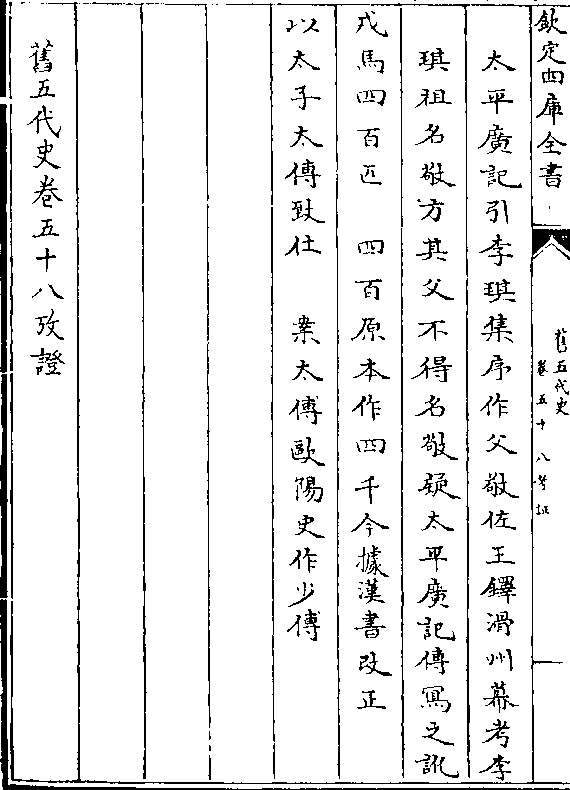 欽定四庫全書
舊五代史
卷五十八考證
太平廣記引李琪集序作父敬佐王鐸滑州幕考李
琪祖名敬方其父不得名敬疑太平廣記傳寫之訛
戎馬四百匹　四百原本作四千今據漢書改正
以太子太傅致仕　案太傅歐陽史作少傅
舊五代史卷五十八攷證